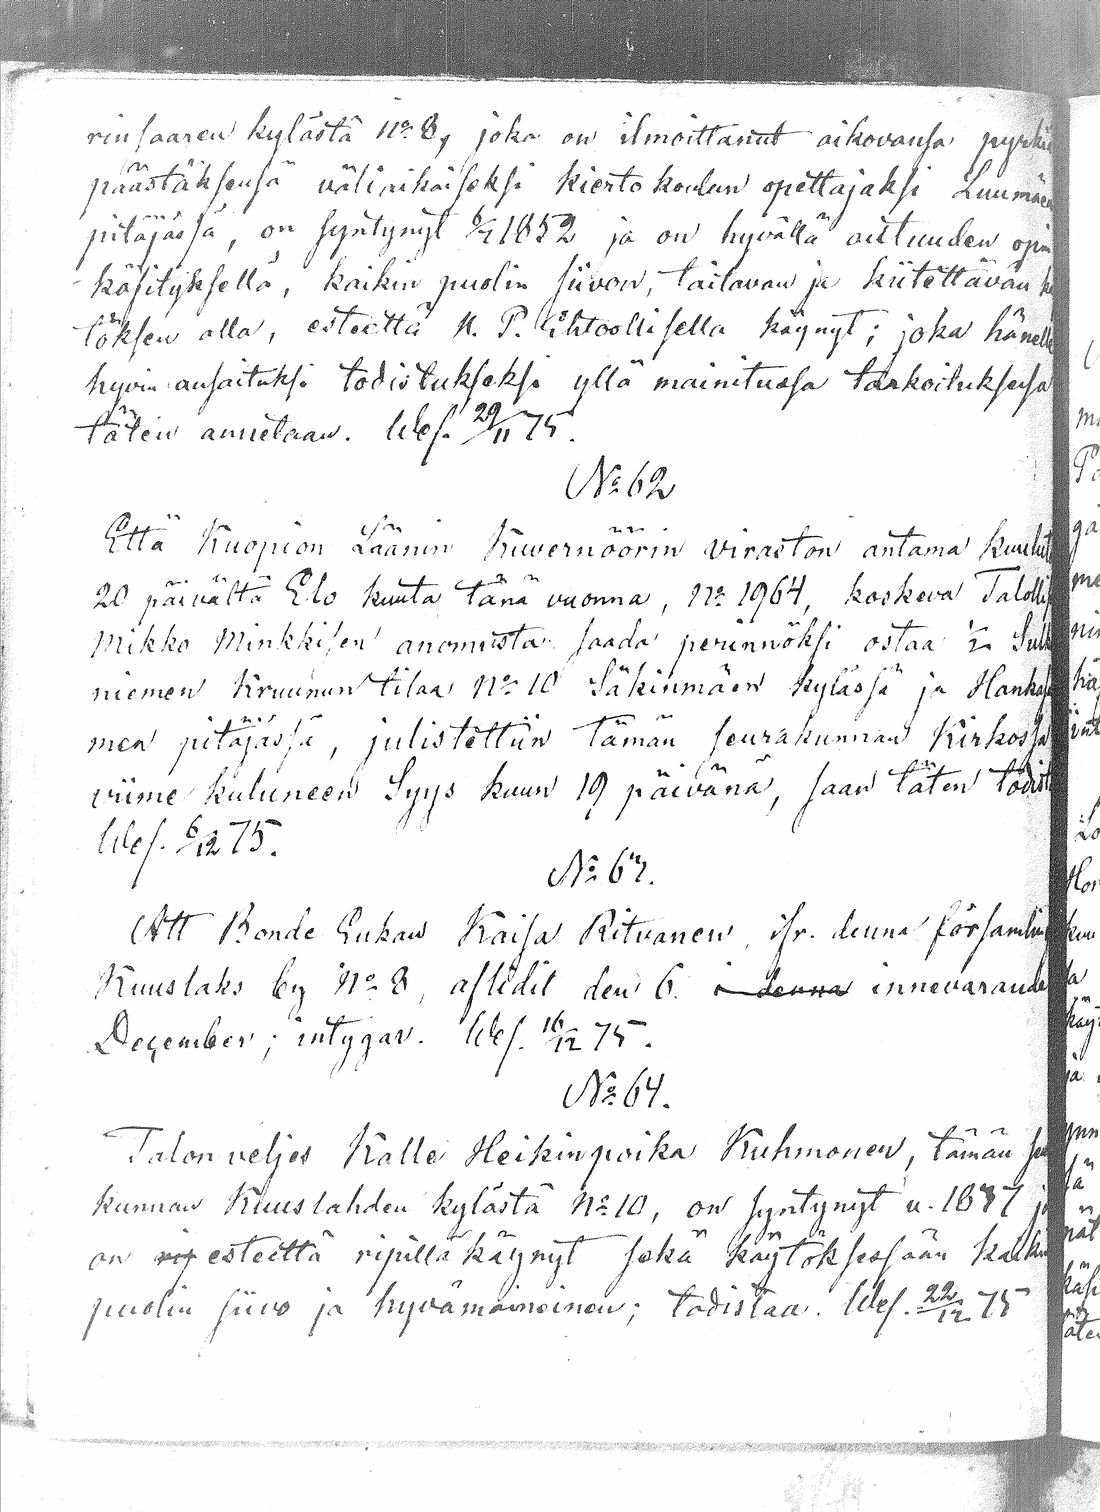 rinsaaren kylästä No 8, joka on ilmoittanut aikovansa pyrkiä
päästäksensä väliaikaiseksi kiertokoulun opettajaksi Luumäen
pitäjässä, on syntynyt 6/7 1852 ja on hyvällä autuuden opin
käsityksellä, kaikin puolin siivon, taitavan ja kiitettävän
töksen alla, esteettä H. P. Ehtoollisella käynyt; joka hänelle
hyvin ansaituksi todistukseksi yllä mainitussa tarkoituksessa
täten annetaan. Wes. 29/11 75.
No 62
Että Kuopion Läänin Kuvernöörin viraston antama kuulut
20 päivältä Elo kuuta tänä vuonna, No 1964, koskeva Talolli
Mikko Minkkisen anomusta saada perinnöksi ostaa 1/2 Sulk
niemen Kruunun tilaa No 10 Säkinmäen kylässä ja Hankas
men pitäjässä, julistettiin tämän seurakunnan Kirkossa
viime kuluneen Syys kuun 19 päivänä, saan täten todist
Wes. 6/12 75.
No 63.
Att Bonde Enkan Kaisa Ritvanen, ifr. denna församling
Kuuslaks by No 8, aflidit den 6. i denna innevarande
December; intygar. Wes. 16/12 75.
No 64.
Talon veljes Kalle Heikinpoika Kuhmonen, tämän seu
kunnan Kuuslahden kylästä No 10, on syntynyt v. 1837 ja
on rip esteettä ripillä käynyt sekä käytöksessään kaikin
puolin siivo ja hyvämaineinen; todistaa. Wes. 22/12 75